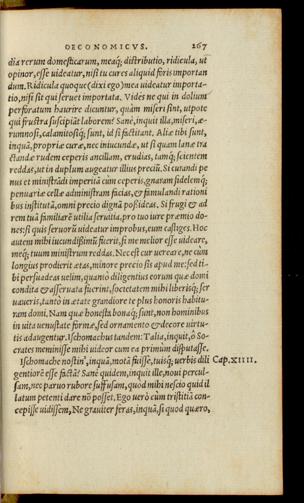 OECONOMICVS. 267
dia rerum domesticarum, meaq́; distributio, ridicula, ut
opinor, esse uideatur, nisi tu cures aliquid foris importan
dum. Ridicula quoque (dixi ego) mea uideatur importa-
tio, nisi sit qui seruet importata. Vides ne qui in dolium
perforatum haurire dicuntur, quàm miseri sint, utpote
qui frustra suscipiāt laborem? Sanè, inquit illa, miseri, æ-
rumnosi, calamitosiq́; sunt, id si factitant. Aliæ tibi sunt,
inquā, propriæ curæ, nec iniucundæ, ut si quam lanæ tra
ctandæ rudem ceperis ancillam, erudias, tamq́; scientem
reddas, ut in duplum augeatur illius preciū. Si curandi pe
nus et ministrādi imperitā cùm ceperis, gnaram fidelemq́;
penuariæ cellæ administram facias, & famulandi rationi
bus institutā, omni precio dignā possideas. Si frugi & ad
rem tuā familiarē utilia seruitia, pro tuo iure præmio do-
nes: si quis seruorū uideatur improbus, eum castiges. Hoc
autem mihi iucundissimū fuerit, si me melior esse uideare,
meq́; tuum ministrum reddas. Nec est cur uereare, ne cùm
longius prodierit ætas, minore precio sis apud me: sed ti-
bi persuadeas uelim, quantò diligentius eorum quæ domi
condita & asseruata fuerint, societatem mihi liberisq́; ser
uaueris, tantò in ætate grandiore te plus honoris habitu-
ram domi. Nam quæ honesta bonaq́; sunt, non hominibus
in uita uenustate formæ, sed ornamento & decore uirtu-
tis adaugentur. Ischomachus tandem: Talia, inquit, ô So-
crates meminisse mihi uideor cum ea primùm disputasse.
Ischomache nostin', inquā, motā fuisse, tuisq́; uerbis dili Cap. XIIII.
gentiorē esse factā? Sanè quidem, inquit ille, noui percul-
sam, nec paruo rubore suffusam, quod mihi nescio quid il
latum petenti dare nō posset. Ego uerò cùm tristitiā con-
cepisse uidissem, Ne grauiter feras, inquā, si quod quæro,